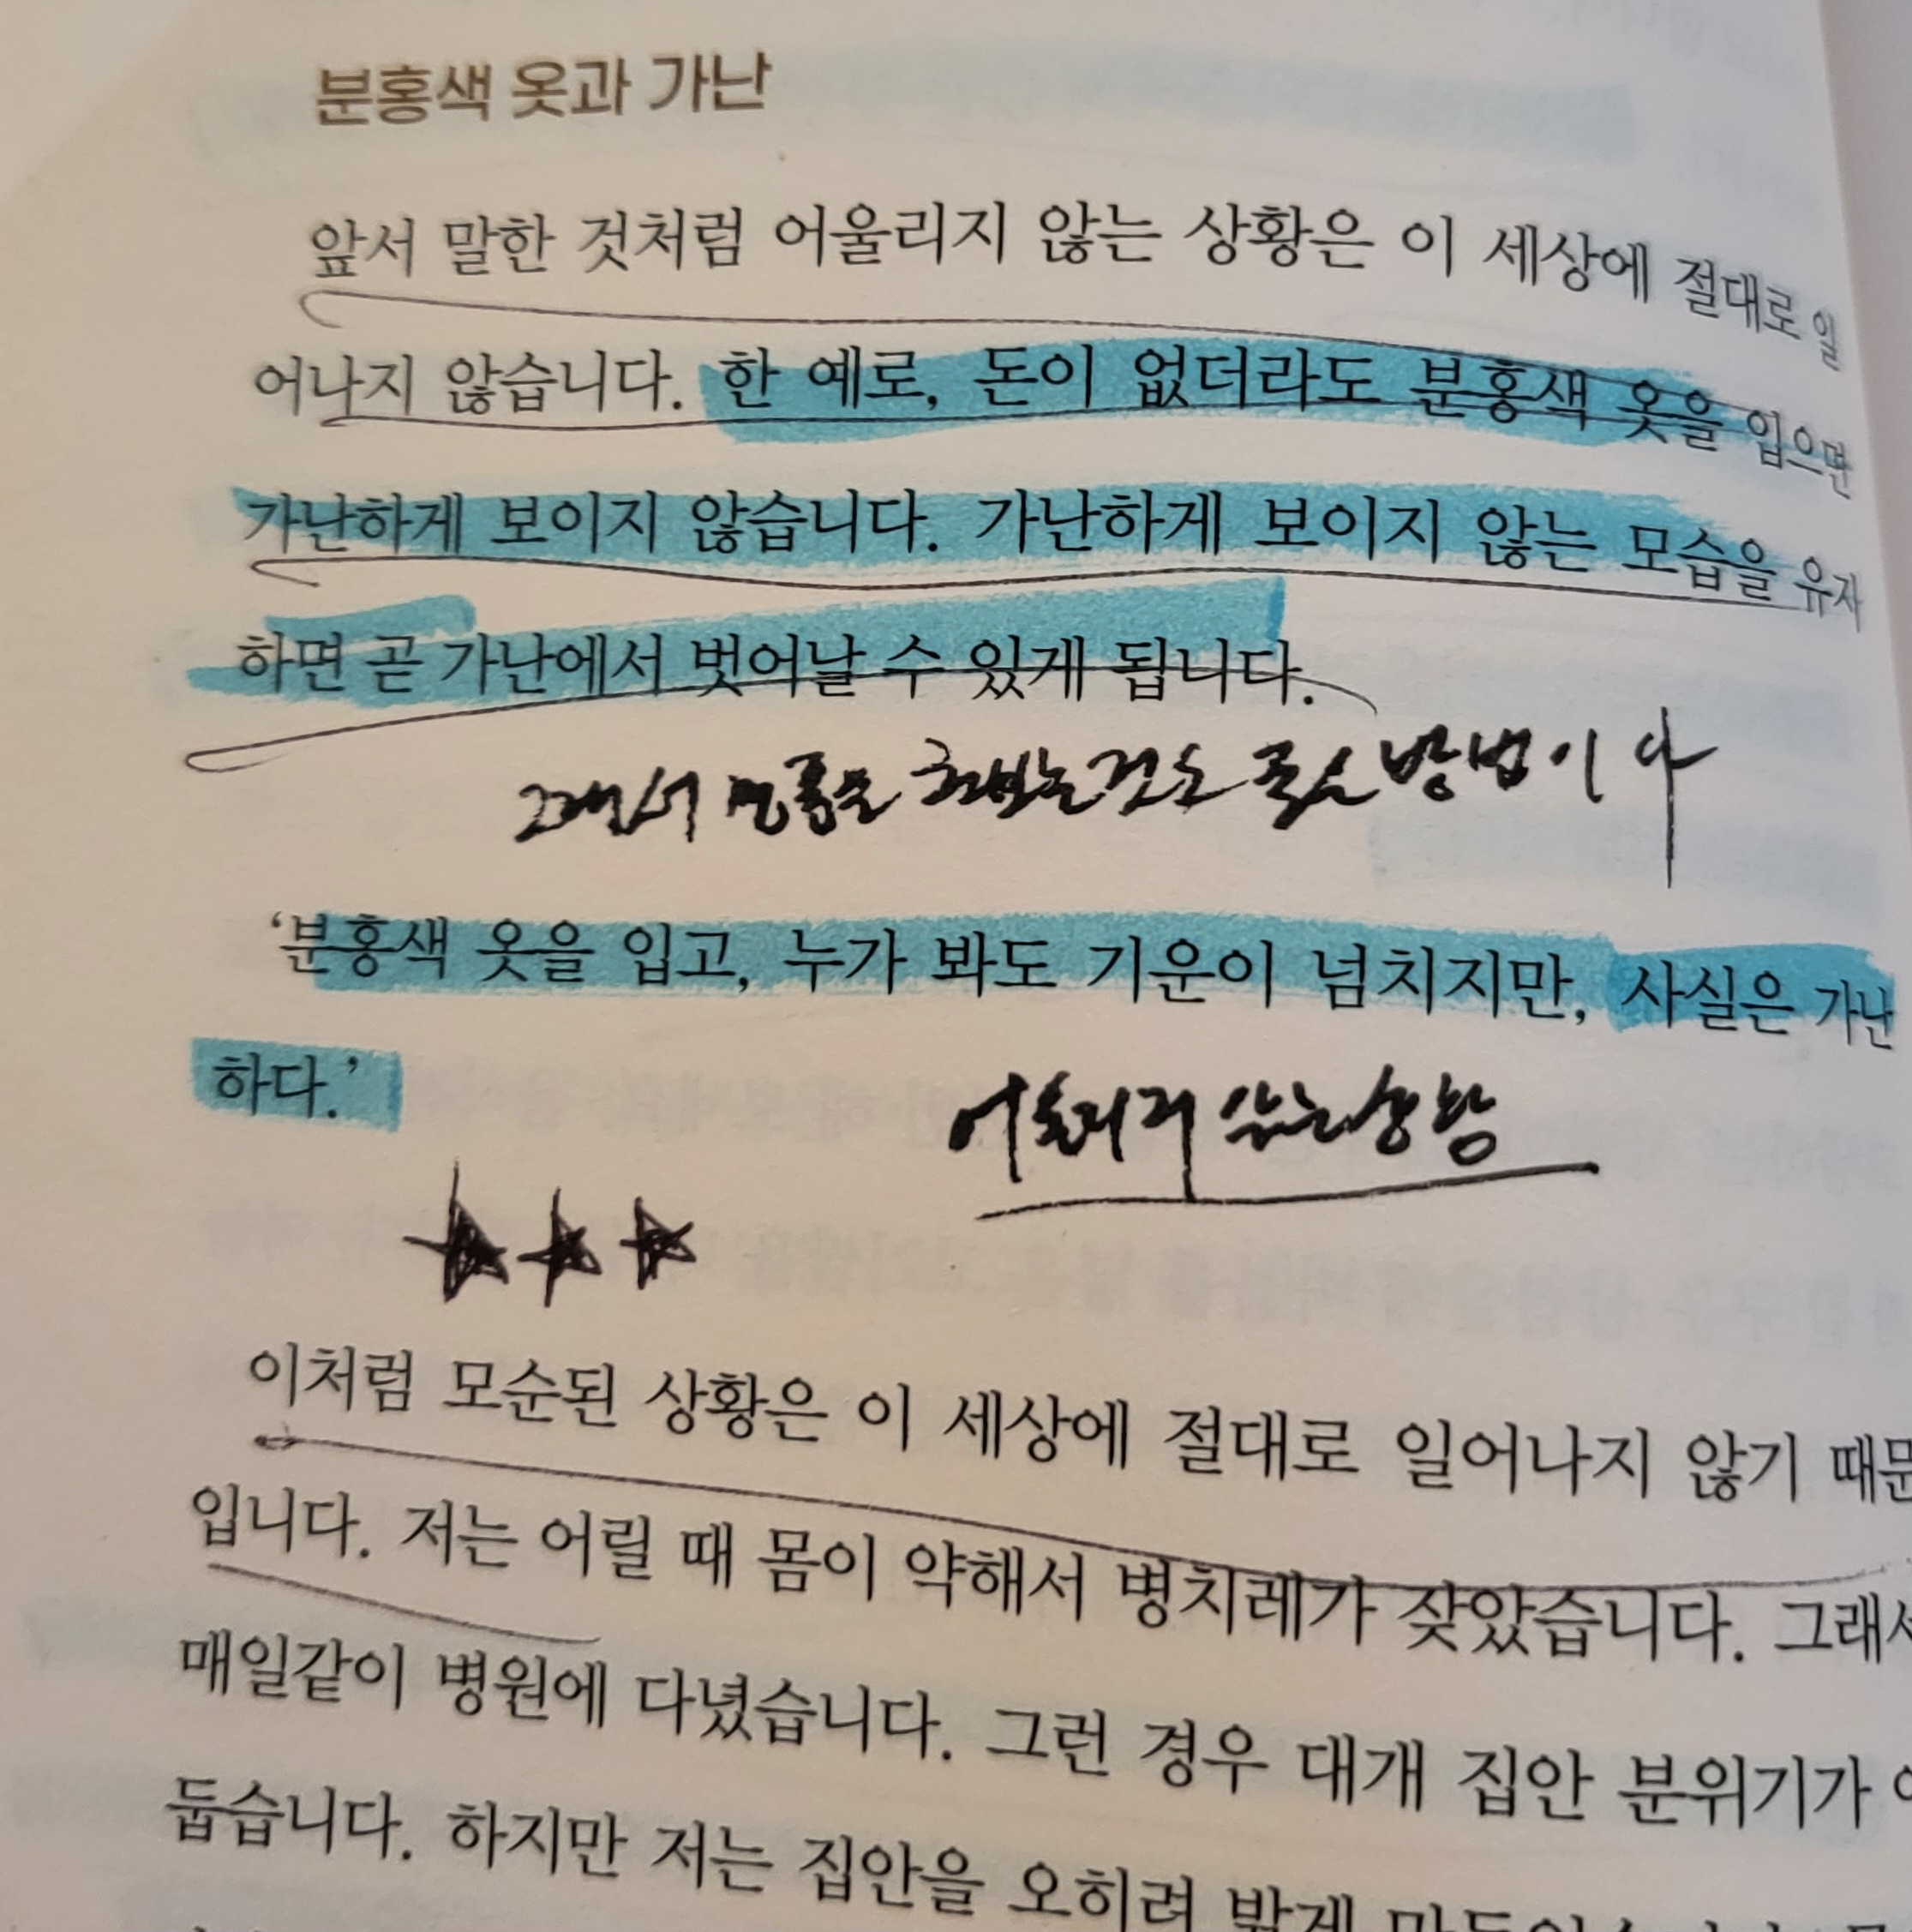 분홍색 옷과 가난
앞서 말한 것처럼 어울리지 않는 상황은 이 세상에 절대로 일
어나지 않습니다. 한 예로, 돈이 없더라도 분홍색 옷을 입으면
가난하게 보이지 않습니다. 가난하게 보이지 않는 모습을 유지
하면 곧 가난에서 벗어날 수 있게 됩니다.
그래서 명품을 구입하는것도 좋은 방법이다
‘분홍색 옷을 입고, 누가 봐도 기운이 넘치지만, 사실은 가난
하다.’
어울리지 않는상황
이처럼 모순된 상황은 이 세상에 절대로 일어나지 않기 때문
입니다. 저는 어릴 때 몸이 약해서 병치레가 잦았습니다. 그래서
매일같이 병원에 다녔습니다. 그런 경우 대개 집안 분위기가 어
둡습니다. 하지만 저는 집안을 오히려 밝게